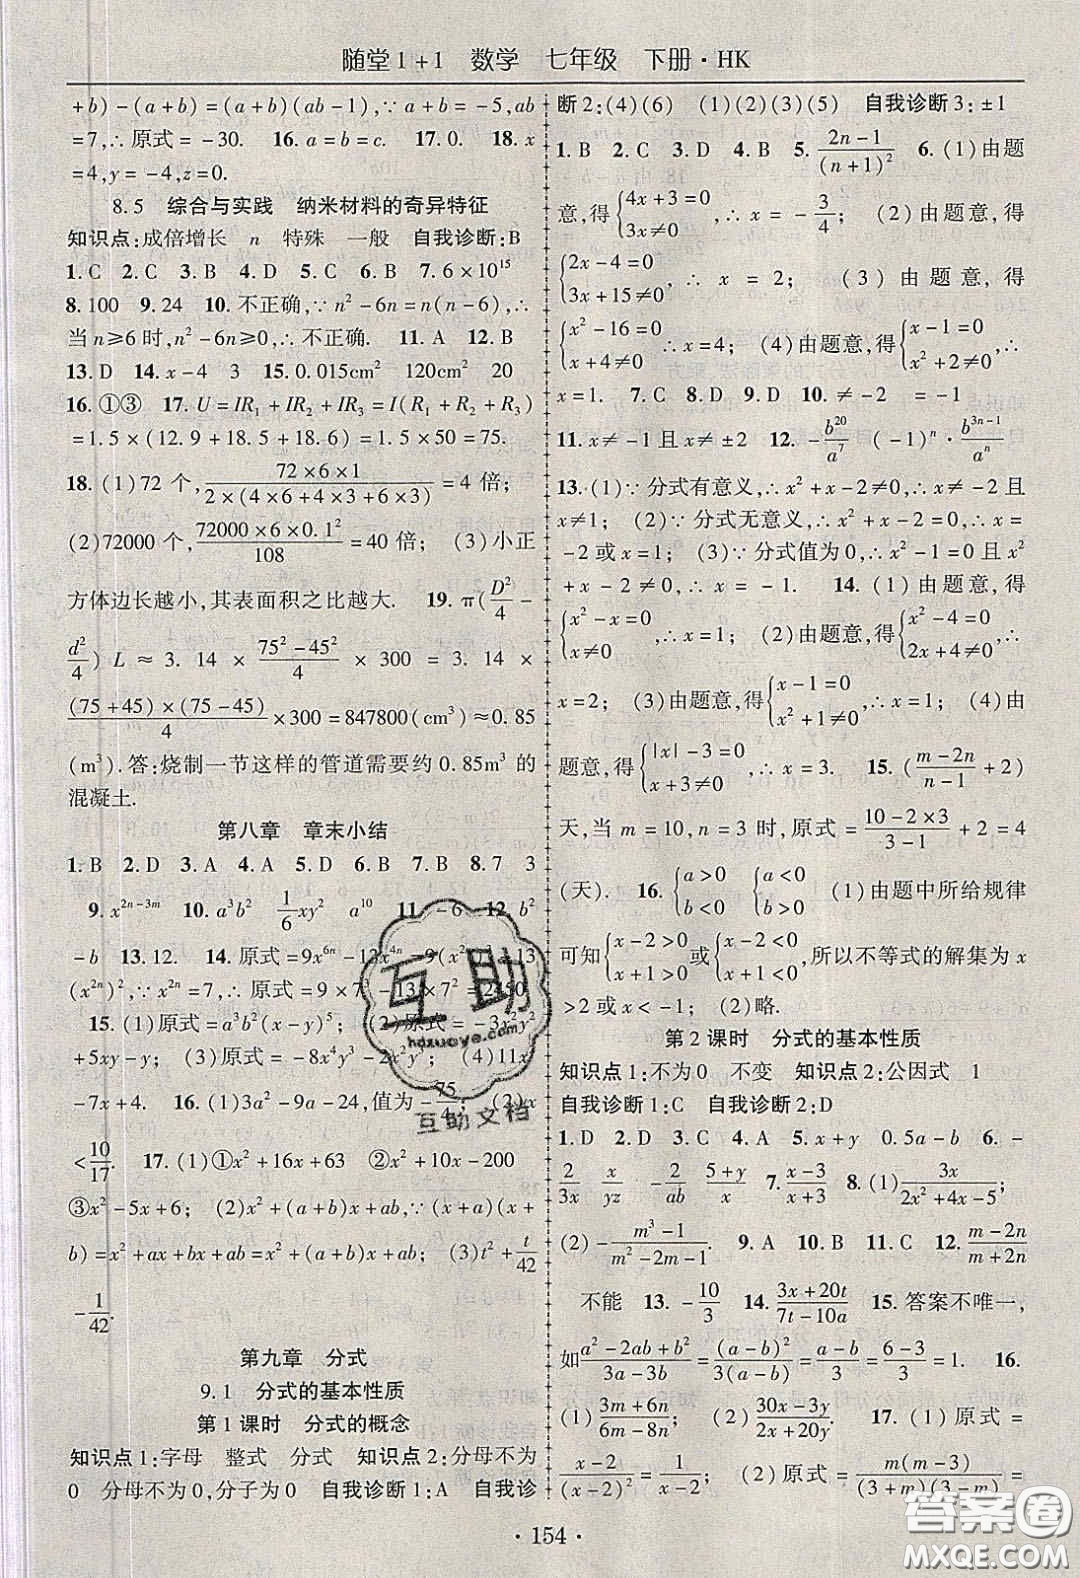 随堂1+1 数学 七年级 下册·HK
+b)-(a+b)=(a+b)(ab-1),∵a+b=-5,ab
=7,∴原式=-30. 16. a=b=c. 17. 0. 18. x
=4,y=-4,z=0.
8.5 综合与实践 纳米材料的奇异特征
知识点:成倍增长 n 特殊 一般 自我诊断:B
1. C 2. C 3. B 4. D 5. C 6. B 7. 6×10¹⁵
8. 100 9. 24 10. 不正确,∵n²-6n=n(n-6),∴
当n≥6时,n²-6n≥0,∴不正确. 11. A 12. B
13. D 14. x-4 3 15. 0.015cm² 120cm² 20
16. ①③ 17. U=IR₁+IR₂+IR₃=I(R₁+R₂+R₃)
=1.5×(12.9+18.5+18.6)=1.5×50=75.
18. (1)72个,72×6×1/2×(4×6+4×3+6×3)=4倍;
(2)72000个,72000×6×0.1²/108=40倍; (3)小正
方体边长越小,其表面积之比越大. 19. π(D²/4-
d²/4)L≈3.14×75²-45²/4×300=3.14×
(75+45)×(75-45)/4×300=847800(cm³)≈0.85
(m³).答:烧制一节这样的管道需要约0.85m³的
混凝土.
第八章 章末小结
1. B 2. D 3. A 4. A 5. D 6. B 7. B 8. 7 3
9. x²ⁿ⁻³ᵐ 10. a³b² 1/6xy² a¹⁰ 11. -6 12. b²
-b 13. 12. 14. 原式=9x⁶ⁿ-13x⁴ⁿ=9(x²ⁿ)³-13
(x²ⁿ)²,∵x²ⁿ=7,∴原式=9×7³-13×7²=2450.
15. (1)原式=a³b²(x-y)⁵; (2)原式=-3x²y²
+5xy-y; (3)原式=-8x⁴y³-2x²y; (4)11x
-7x+4. 16. (1)3a²-9a-24,值为-75/4; (2)x
<10/17. 17. (1)①x²+16x+63 ②x²+10x-200
③x²-5x+6; (2)x²+(a+b)x+ab,∵(x+a)(x+
b)=x²+ax+bx+ab=x²+(a+b)x+ab; (3)t²+t/42
-1/42.
第九章 分式
9.1 分式的基本性质
第1课时 分式的概念
知识点1:字母 整式 分式 知识点2:分母不为
0 分母不为0,分子为0 自我诊断1:A 自我诊
断2:(4)(6) (1)(2)(3)(5) 自我诊断3:±1
1. B 2. C 3. B 4. B 5. 2n-1/(n+1)² 6. (1)由题
意,得{4x+3=0 3x≠0,∴x=-3/4; (2)由题意,得
{2x-4=0 3x+15≠0,∴x=2; (3)由题意,得
{x²-16=0 x+4≠0,∴x=4; (4)由题意,得{x-1=0 x²+2≠0,∴
x=1. 7. C 8. D 9. D 10. ≠-2 =-1
11. x≠-1且x≠±2 12. -b²⁰/a⁷ (-1)ⁿ·b³ⁿ⁻¹/aⁿ
13. (1)∵分式有意义,∴x²+x-2≠0,∴x≠-2且
x≠1; (2)∵分式无意义,∴x²+x-2=0,∴x=
-2或x=1; (3)∵分式值为0,∴x²-1=0且x²
+x-2≠0,∴x=-1. 14. (1)由题意,得
{x²-x=0 x≠0,∴x=1; (2)由题意,得{x²-4=0 2x+4≠0,∴
x=2; (3)由题意,得{x-1=0 x²+1≠0,∴x=1; (4)由
题意,得{|x|-3=0 x+3≠0,∴x=3. 15. (m-2n/n-1+2)
天,当m=10,n=3时,原式=10-2×3/3-1+2=4
(天). 16. {a>0 b<0 {a<0 b>0 (1)由题中所给规律
可知{x-2>0 x+1>0或{x-2<0 x+1<0,所以不等式的解集为x
>2或x<-1; (2)略.
第2课时 分式的基本性质
知识点1:不为0 不变 知识点2:公因式 1
自我诊断1:C 自我诊断2:D
1. D 2. D 3. C 4. A 5. x+y 0.5a-b 6. -
2/3x x/yz -2/ab 5+y/xy 7. x-3/x+3 8. (1)3x/2x²+4x-5;
(2)-m³-1/m²-2m-1. 9. A 10. B 11. C 12. m-2n/m+2n
不能 13. -10/3 14. 3x+20t/7t-10a 15. 答案不唯一,
如a²-2ab+b²/3a-3b=(a-b)²/3(a-b)=a-b/3=6-3/3=1. 16.
(1)3m+6n/6m-8n; (2)30x-3y/20x+2y. 17. (1)原式=
x-2/(x-2)²=1/x-2; (2)原式=m(m-3)/(3+m)(3-m)=
·154·
互助
hdzuoye.com
互助文档
答案圈
MXQE.COM